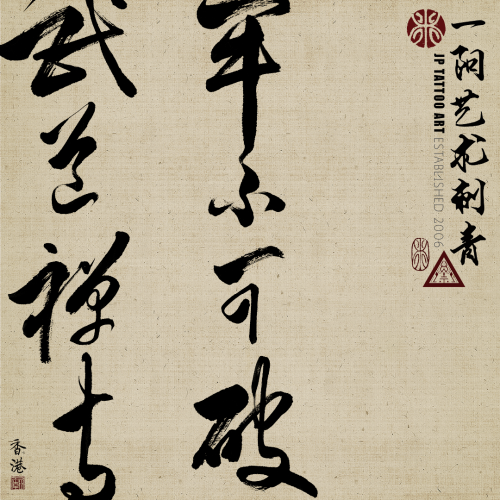 一阳艺术刺青
JP TATTOO ART ESTABLISHED 2006
牢不可破
武道禅
香港